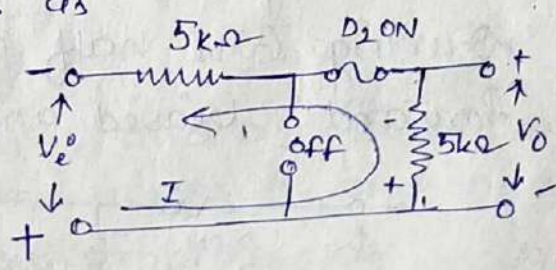 5kΩ D2ON
- +
Vi off - 5kΩ V0
I +
+ -